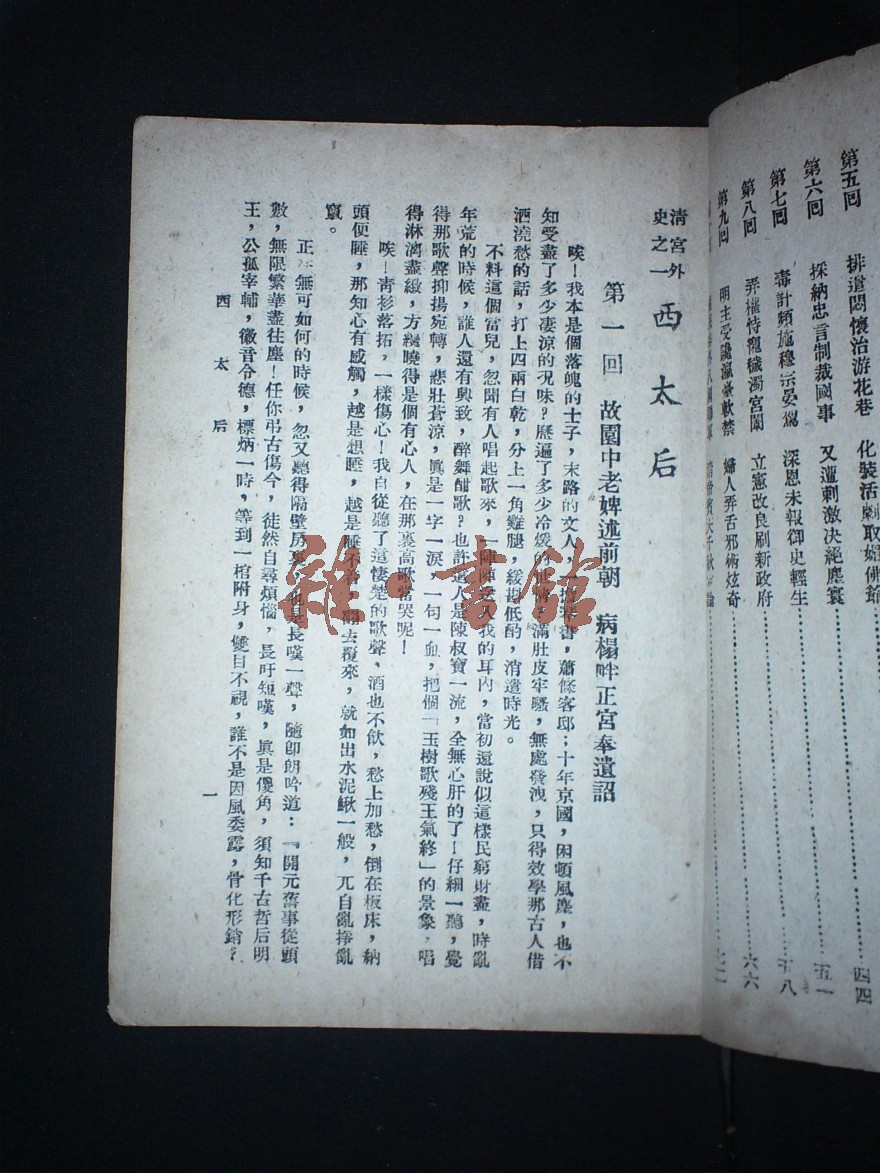 第五回　排遣悶懷治游花巷　化裝活劇取媚佛爺……四四
第六回　採納忠言制裁國事　又遭刺激決絕塵寰……五一
第七回　毒計頻施穆宗晏駕　深恩未報御史輕生……五八
第八回　弄權恃寵穢濁宮闈　立憲改良刷新政府……六六
第九回　明主受讒瀛臺軟禁　婦人弄舌邪術炫奇……七二
清宮外史之一　西太后
第一回　故園中老婢述前朝　病榻畔正宮奉遺詔
唉！我本是個落魄的士子，末路的文人，一擔琴書，蕭條客邸；十年京國，困頓風塵，也不
知受盡了多少淒涼的況味？歷遍了多少冷緩的世情，滿肚皮牢騷，無處發洩，只得效學那古人借
酒澆愁的話，打上四兩白乾，分上一角雞腿，緩斟低酌，消遣時光。
不料這個當兒，忽聞有人唱起歌來，一陣陣送入我的耳內，當初還說似這樣民窮財盡，時亂
年荒的時候，誰人還有興致，醉舞酣歌？也許這人是陳叔寶一流，全無心肝的了！仔細一聽，覺
得那歌聲抑揚宛轉，悲壯蒼涼，眞是一字一淚，一句一血，把個「玉樹歌殘王氣終」的景象，唱
得淋漓盡緻，方纔曉得是個有心人，在那裏高歌當哭呢！
唉！靑衫落拓，一樣傷心！我自從聽了這悽楚的歌聲，酒也不飲，愁上加愁，倒在板床，納
頭便睡，那知心有感觸，越是想睡，越是睡不着，翻去覆來，就如出水泥鰍一般，兀自亂捲亂
竄。
正在無可如何的時候，忽又聽得隔壁房裏，也是長嘆一聲，隨卽朗吟道：『開元舊事從頭
數，無限繁華盡往塵！任你弔古傷今，徒然自尋煩惱，長吁短嘆，眞是傻角，須知千古哲后明
王，公孤宰輔，徽音令德，標炳一時，等到一棺附身，雙目不視，誰不是因風委露，骨化形銷？
西太后
一
雜·書館